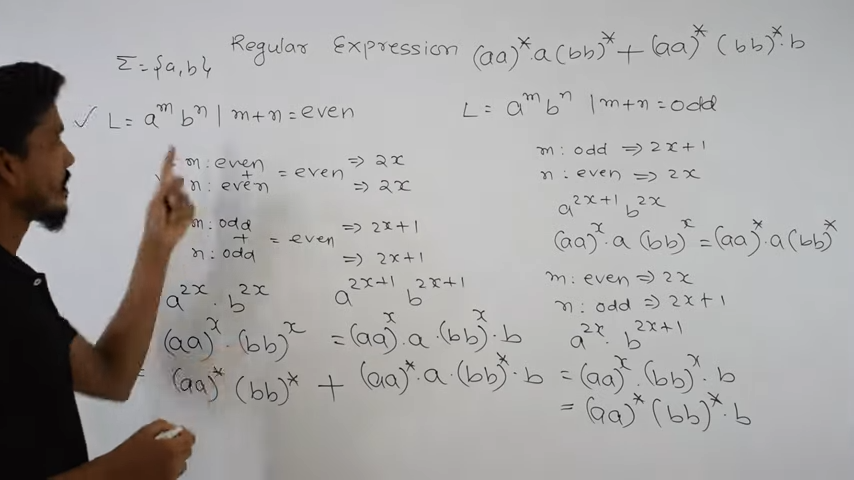 Regular Expression (aa)*.a(bb)* + (aa)*(bb)*.b
Σ={a,b}
✓ L= a^m b^n | m+n=even
m: even
+ = even ⇒ 2x
n: even ⇒ 2x
m: odd ⇒ 2x+1
+ = even
n: odd ⇒ 2x+1
a^2x . b^2x a^2x+1 b^2x+1
(aa)^x . (bb)^x = (aa)^x . a . (bb)^x . b
= (aa)* (bb)* + (aa)* . a . (bb)* . b
L= a^m b^n | m+n=odd
m: odd ⇒ 2x+1
n: even ⇒ 2x
a^2x+1 b^2x
(aa)^x . a (bb)^x = (aa)* . a (bb)*
m: even ⇒ 2x
n: odd ⇒ 2x+1
a^2x . b^2x+1
= (aa)^x . (bb)^x . b
= (aa)* (bb)* . b